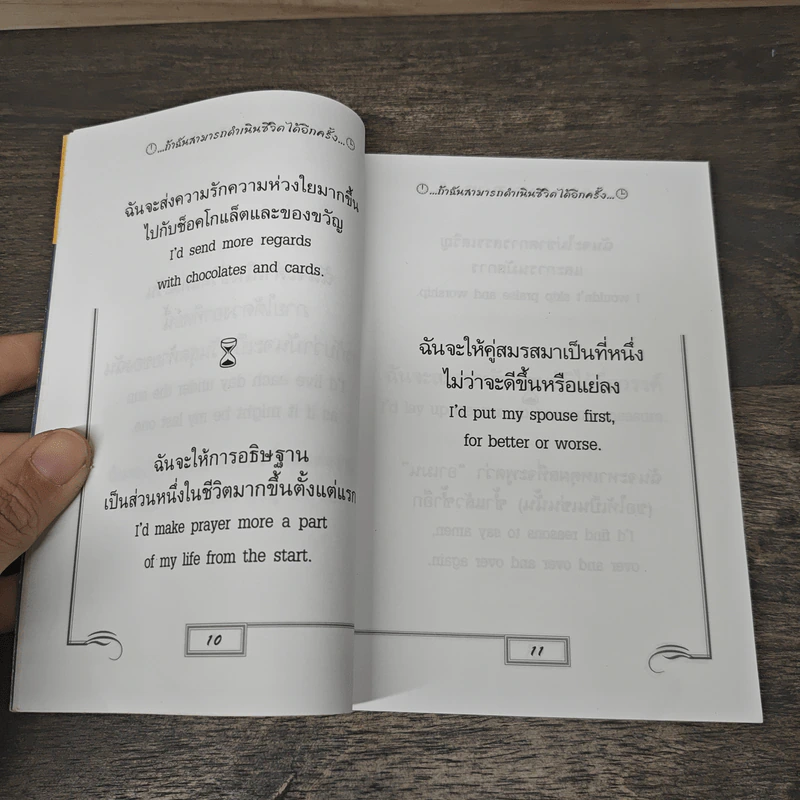 ...ถ้าฉันสามารถดำเนินชีวิตได้อีกครั้ง...
ฉันจะส่งความรักความห่วงใยมากขึ้น
ไปกับช็อคโกแล็ตและของขวัญ
I'd send more regards
with chocolates and cards.
ฉันจะให้การอธิษฐาน
เป็นส่วนหนึ่งในชีวิตมากขึ้นตั้งแต่แรก
I'd make prayer more a part
of my life from the start.
10
...ถ้าฉันสามารถดำเนินชีวิตได้อีกครั้ง...
ฉันจะให้คู่สมรสมาเป็นที่หนึ่ง
ไม่ว่าจะดีขึ้นหรือแย่ลง
I'd put my spouse first,
for better or worse.
11